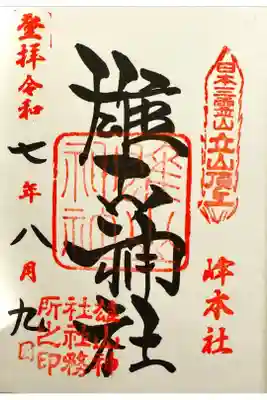 日本三霊山立山頂上
峰本社
雄山神社
雄山神社
登拝令和七年八月九日
雄山神
社社務
所之印